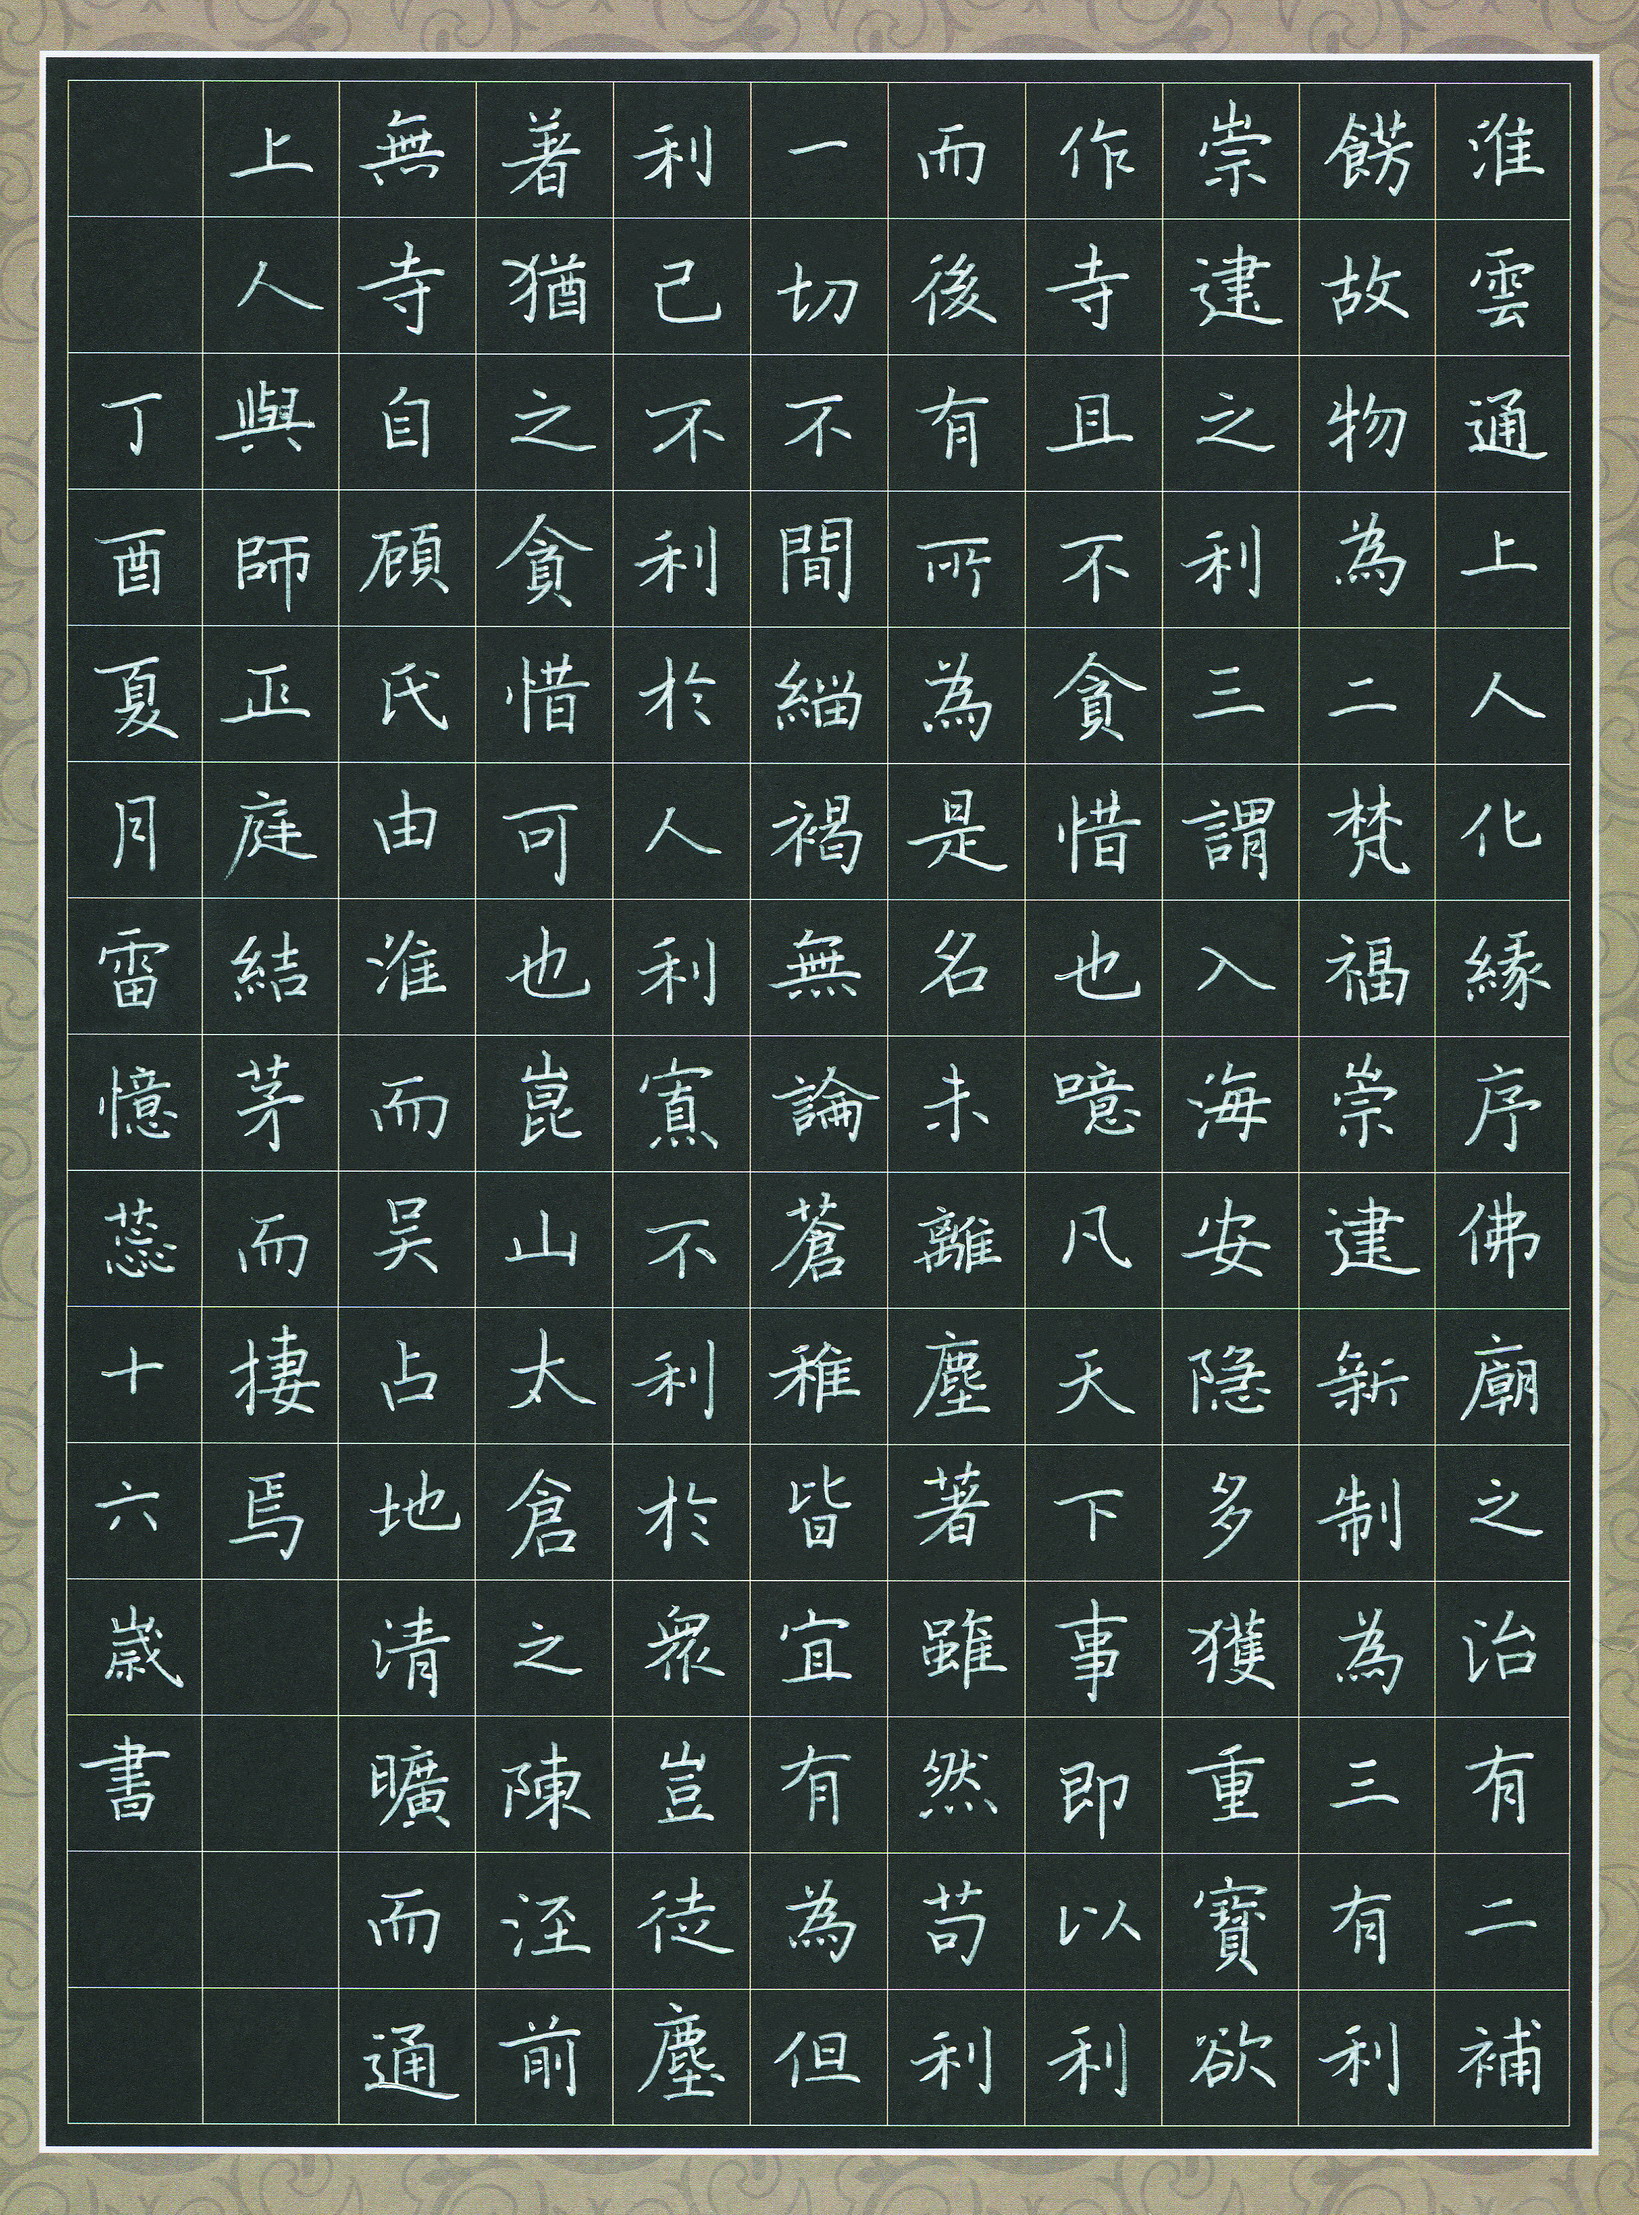 淮雲通上人化緣序佛廟之治有二補
餝故物為二梵福崇建新制為三有利
崇建之利三謂入海安隱多獲重寶欲
作寺且不貪惜也噫凡天下事即以利
而後有所為是名未離塵著雖然苟利
一切不間緇褐無論蒼稚皆宜有為但
利己不利於人利寡不利於眾豈徒塵
著猶之貪惜可也崑山太倉之陳涇前
無寺自顧氏由淮而吴占地清曠而通
上人與師正庭結茅而棲焉
丁酉夏月雷憶蕊十六歲書